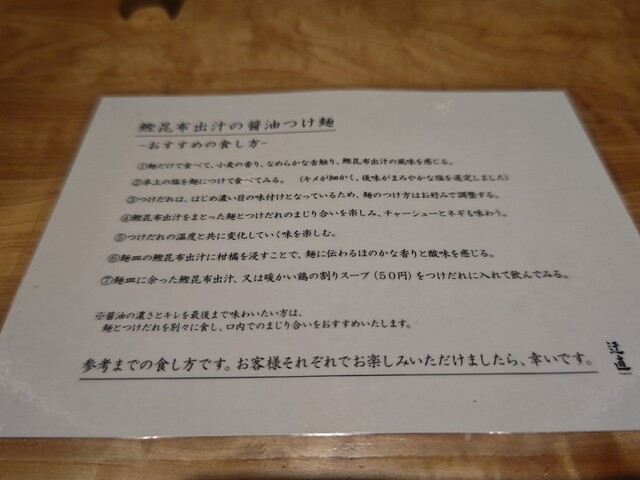 鰹昆布出汁の醤油つけ麺
-おすすめの食し方-
①麺だけで食べて、小麦の香り、なめらかな舌触り、鰹昆布出汁の風味を感じる。
②卓上の塩を麺につけて食べてみる。 (キメが細かく、後味がまろやかな塩を選定しました)
③つけだれは、はじめ濃い目の味付けとなっているため、麺のつけ方はお好みで調整する。
④鰹昆布出汁をまとった麺とつけだれのまじり合いを楽しみ、チャーシューとネギも味わう。
⑤つけだれの温度と共に変化していく味を楽しむ。
⑥麺皿の鰹昆布出汁に柑橘を浸すことで、麺に伝わるほのかな香りと酸味を感じる。
⑦麺皿に余った鰹昆布出汁、又は暖かい鶏の割りスープ(50円)をつけだれに入れて飲んでみる。
※醤油の濃さとキレを最後まで味わいたい方は、
麺とつけだれを別々に食し、口内でのまじり合いをおすすめいたします。
参考までの食し方です。お客様それぞれでお楽しみいただけましたら、幸いです。